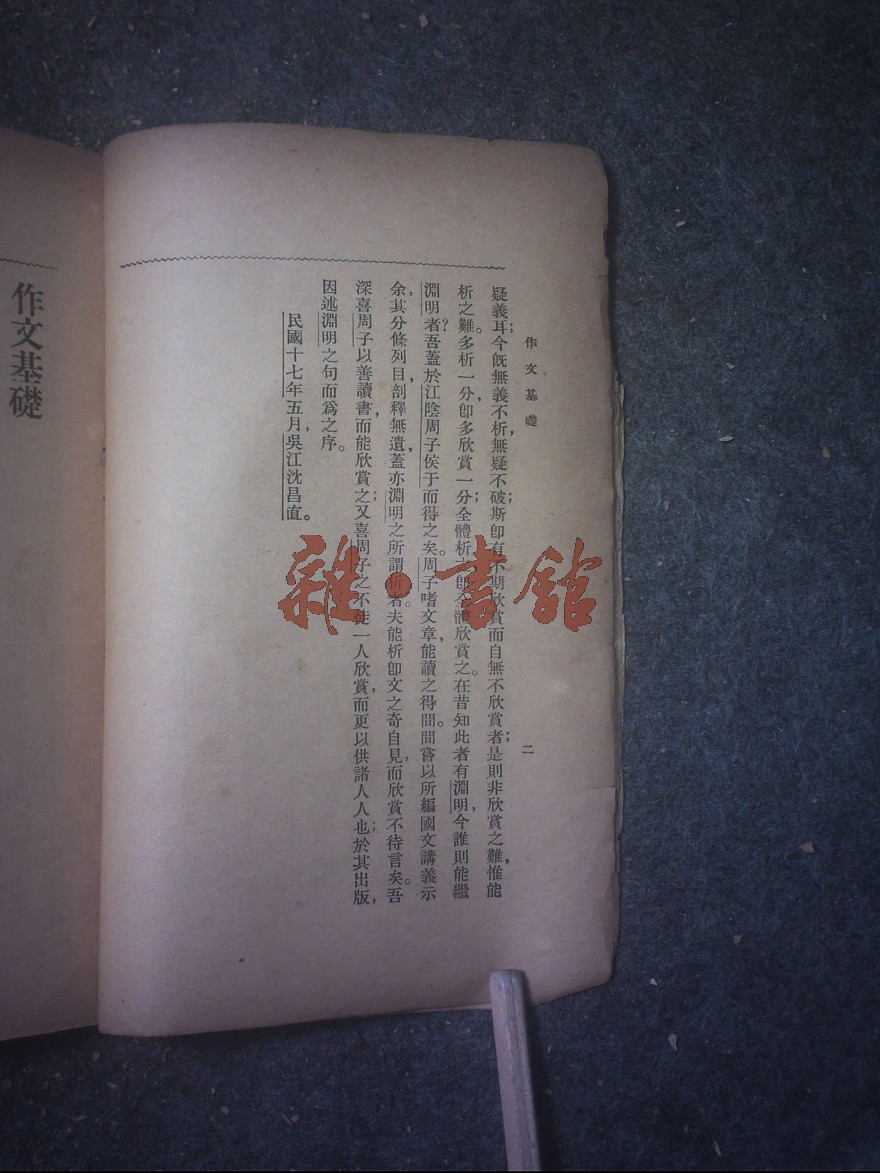 作文基礎
二
疑義耳;今旣無義不析,無疑不破;斯卽有不期欣賞而自無不欣賞者;是則非欣賞之難,惟能
析之難。多析一分,卽多欣賞一分;全體析卽全體欣賞之。在昔知此者有淵明,今誰則能繼
淵明者?吾蓋於江陰周子侯于而得之矣。周子嗜文章,能讀之得間。間嘗以所編國文講義示
余,其分條列目,剖釋無遺,蓋亦淵明之所謂析者。夫能析卽文之奇自見,而欣賞不待言矣。吾
深喜周子以善讀書,而能欣賞之;又喜周子之不徒一人欣賞,而更以供諸人人也;於其出版,
因述淵明之句而爲之序。
民國十七年五月,吳江沈昌直。
作文基礎
雜·書館